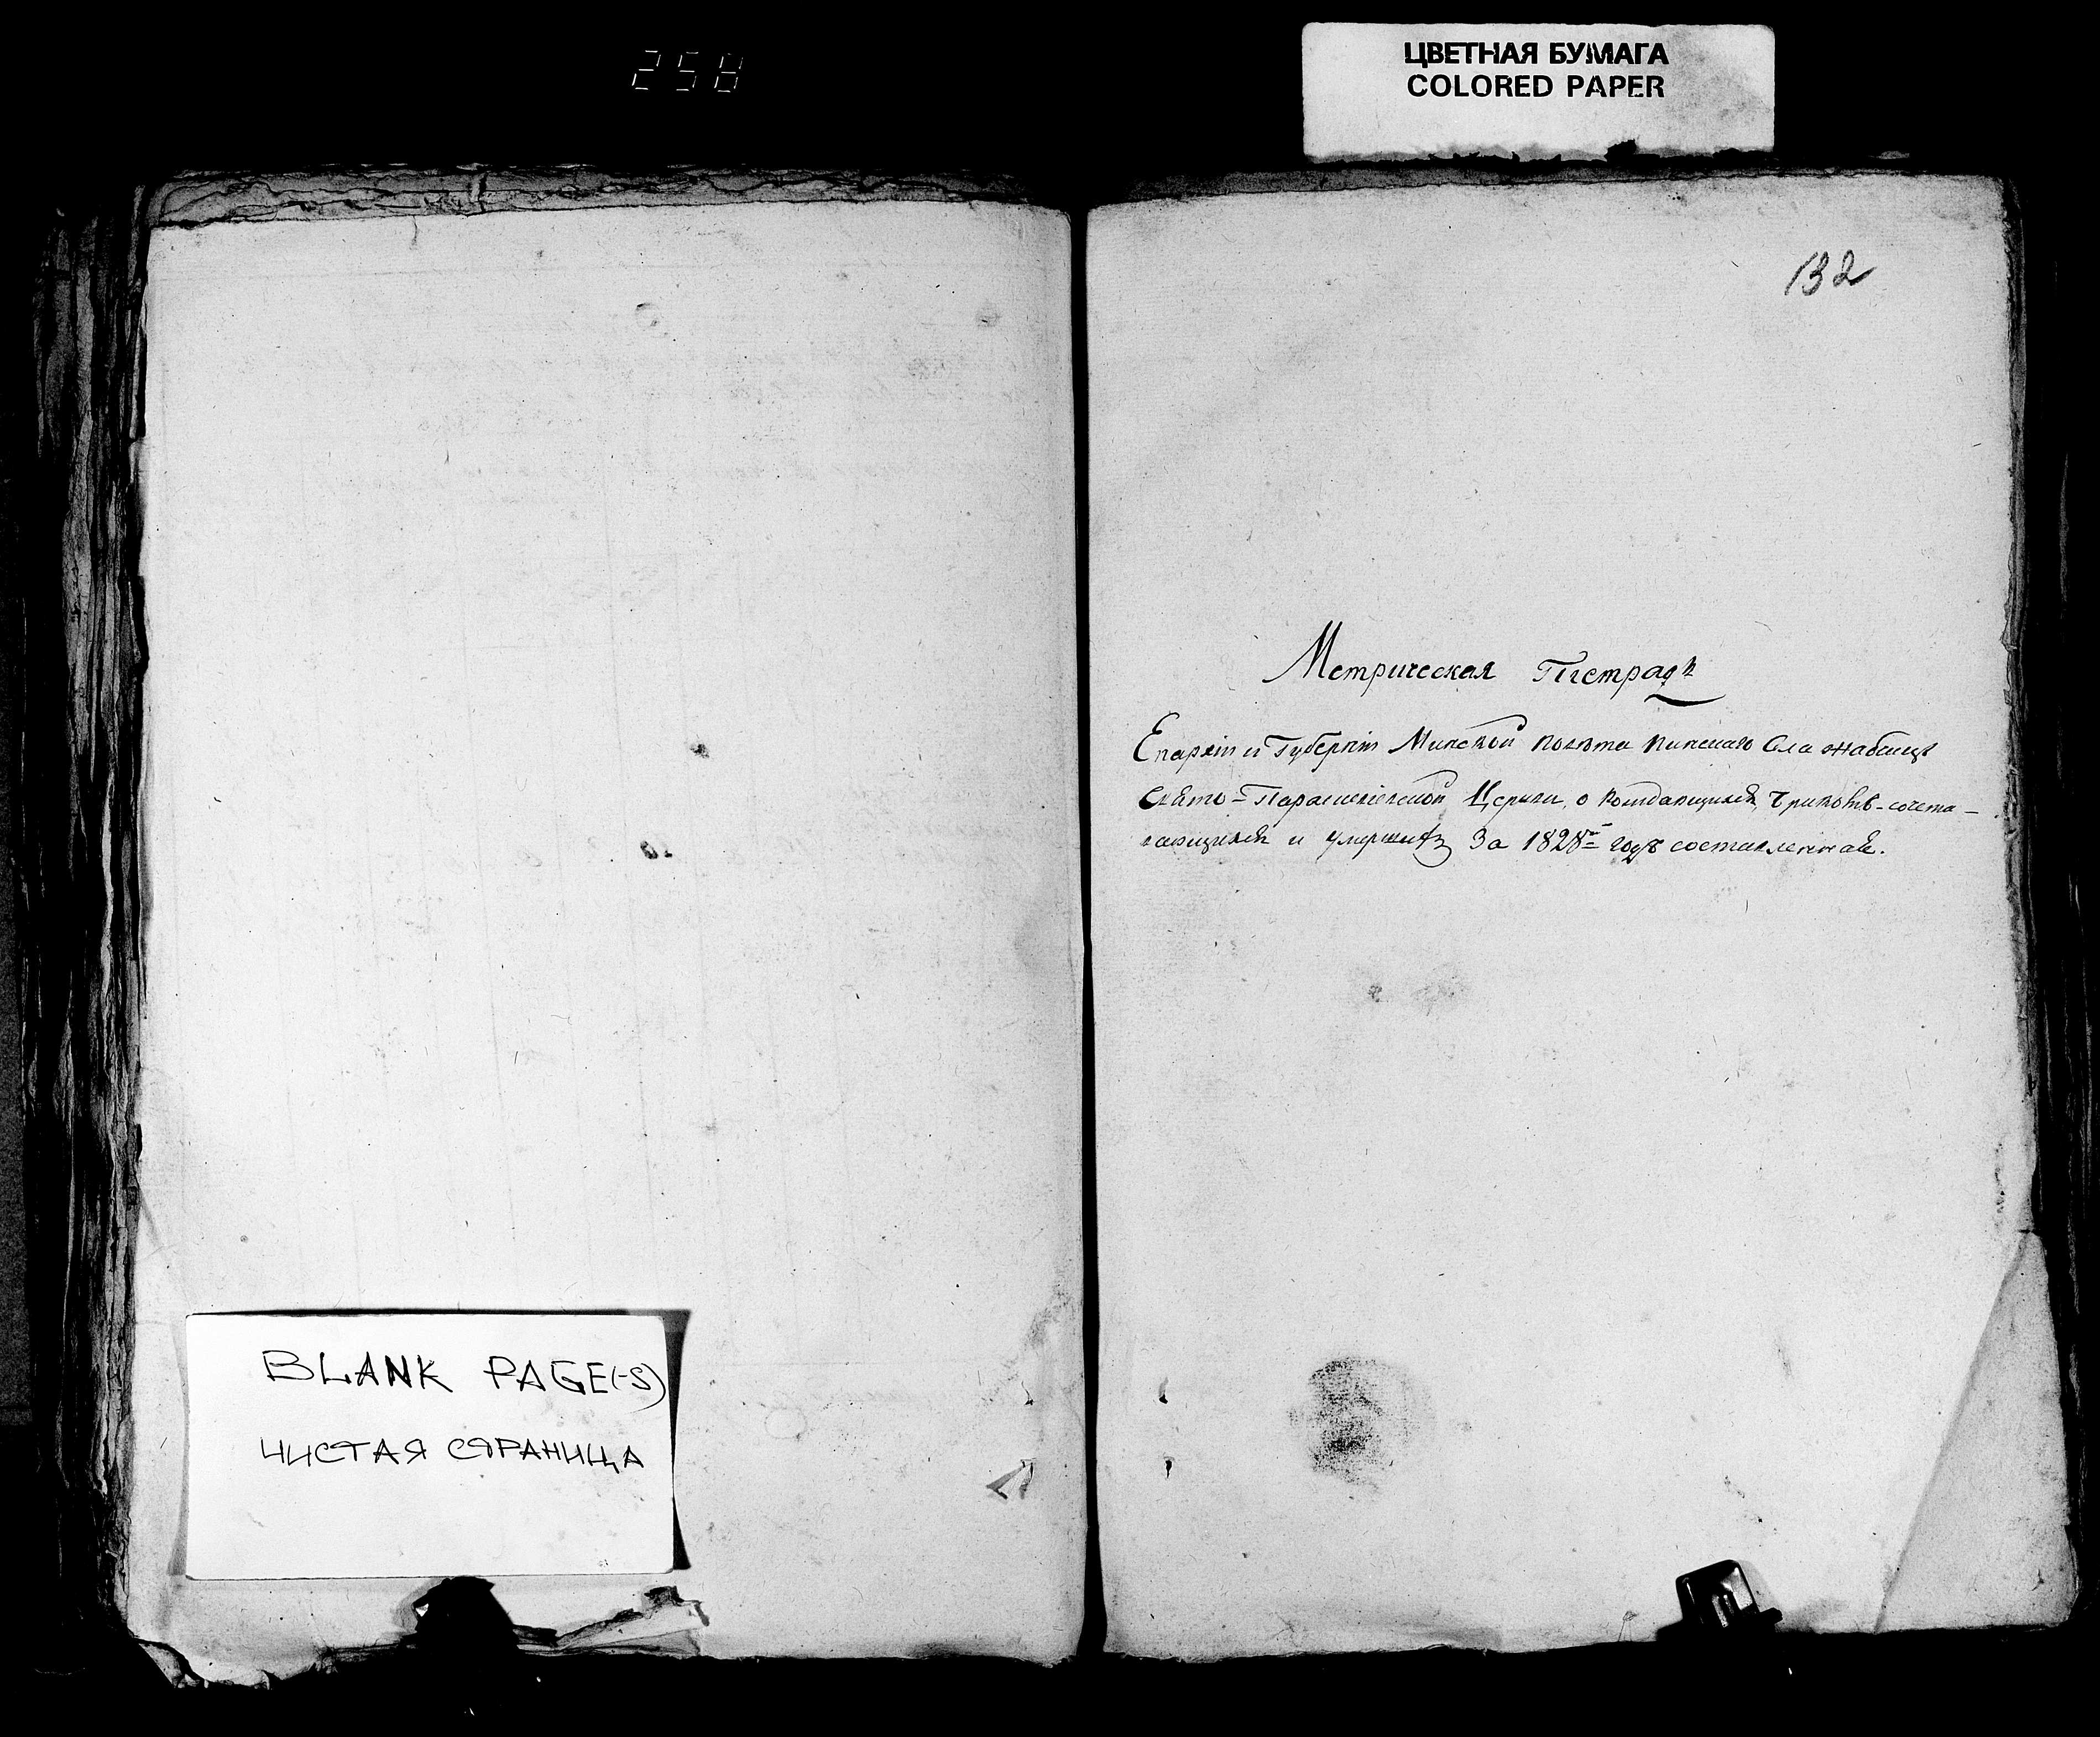 258
ЦВЕТНАЯ БУМАГА
COLORED PAPER
132
Метрическая Тетрадь
Епархіи и Губерніи Минской Повѣта Пинскаго Села Жабчицъ
Свято-Параскевіевской Церкви, о Рождающихся, Бракомъ-сочета-
вающихся и Умершихъ За 1828й годъ составленная.
BLANK PAGE(-S)
ЧИСТАЯ СТРАНИЦА